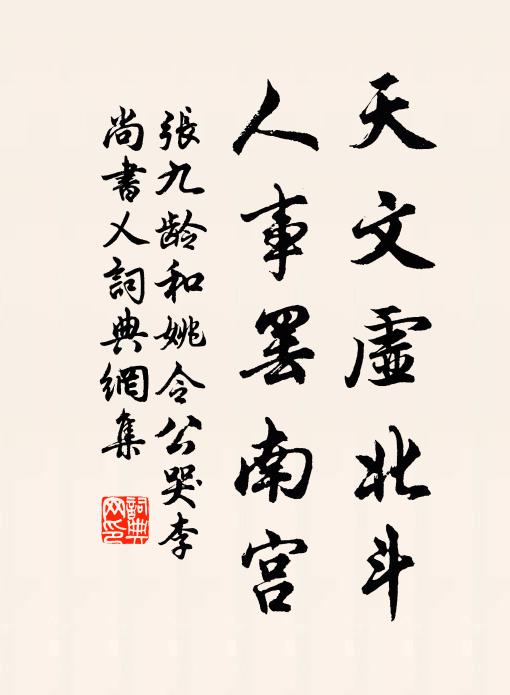 天文虛北斗
人事罢南宫
張九龄和姚令公哭李
尚書乂詞典網集
詞典
网印